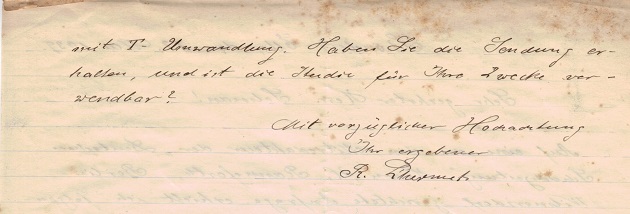 mit T- Umwandlung. Haben Sie die Sendung er-
halten, und ist die Studie für Ihre Zwecke ver-
wendbar?
Mit vorzüglicher Hochachtung
Ihr ergebener
R.